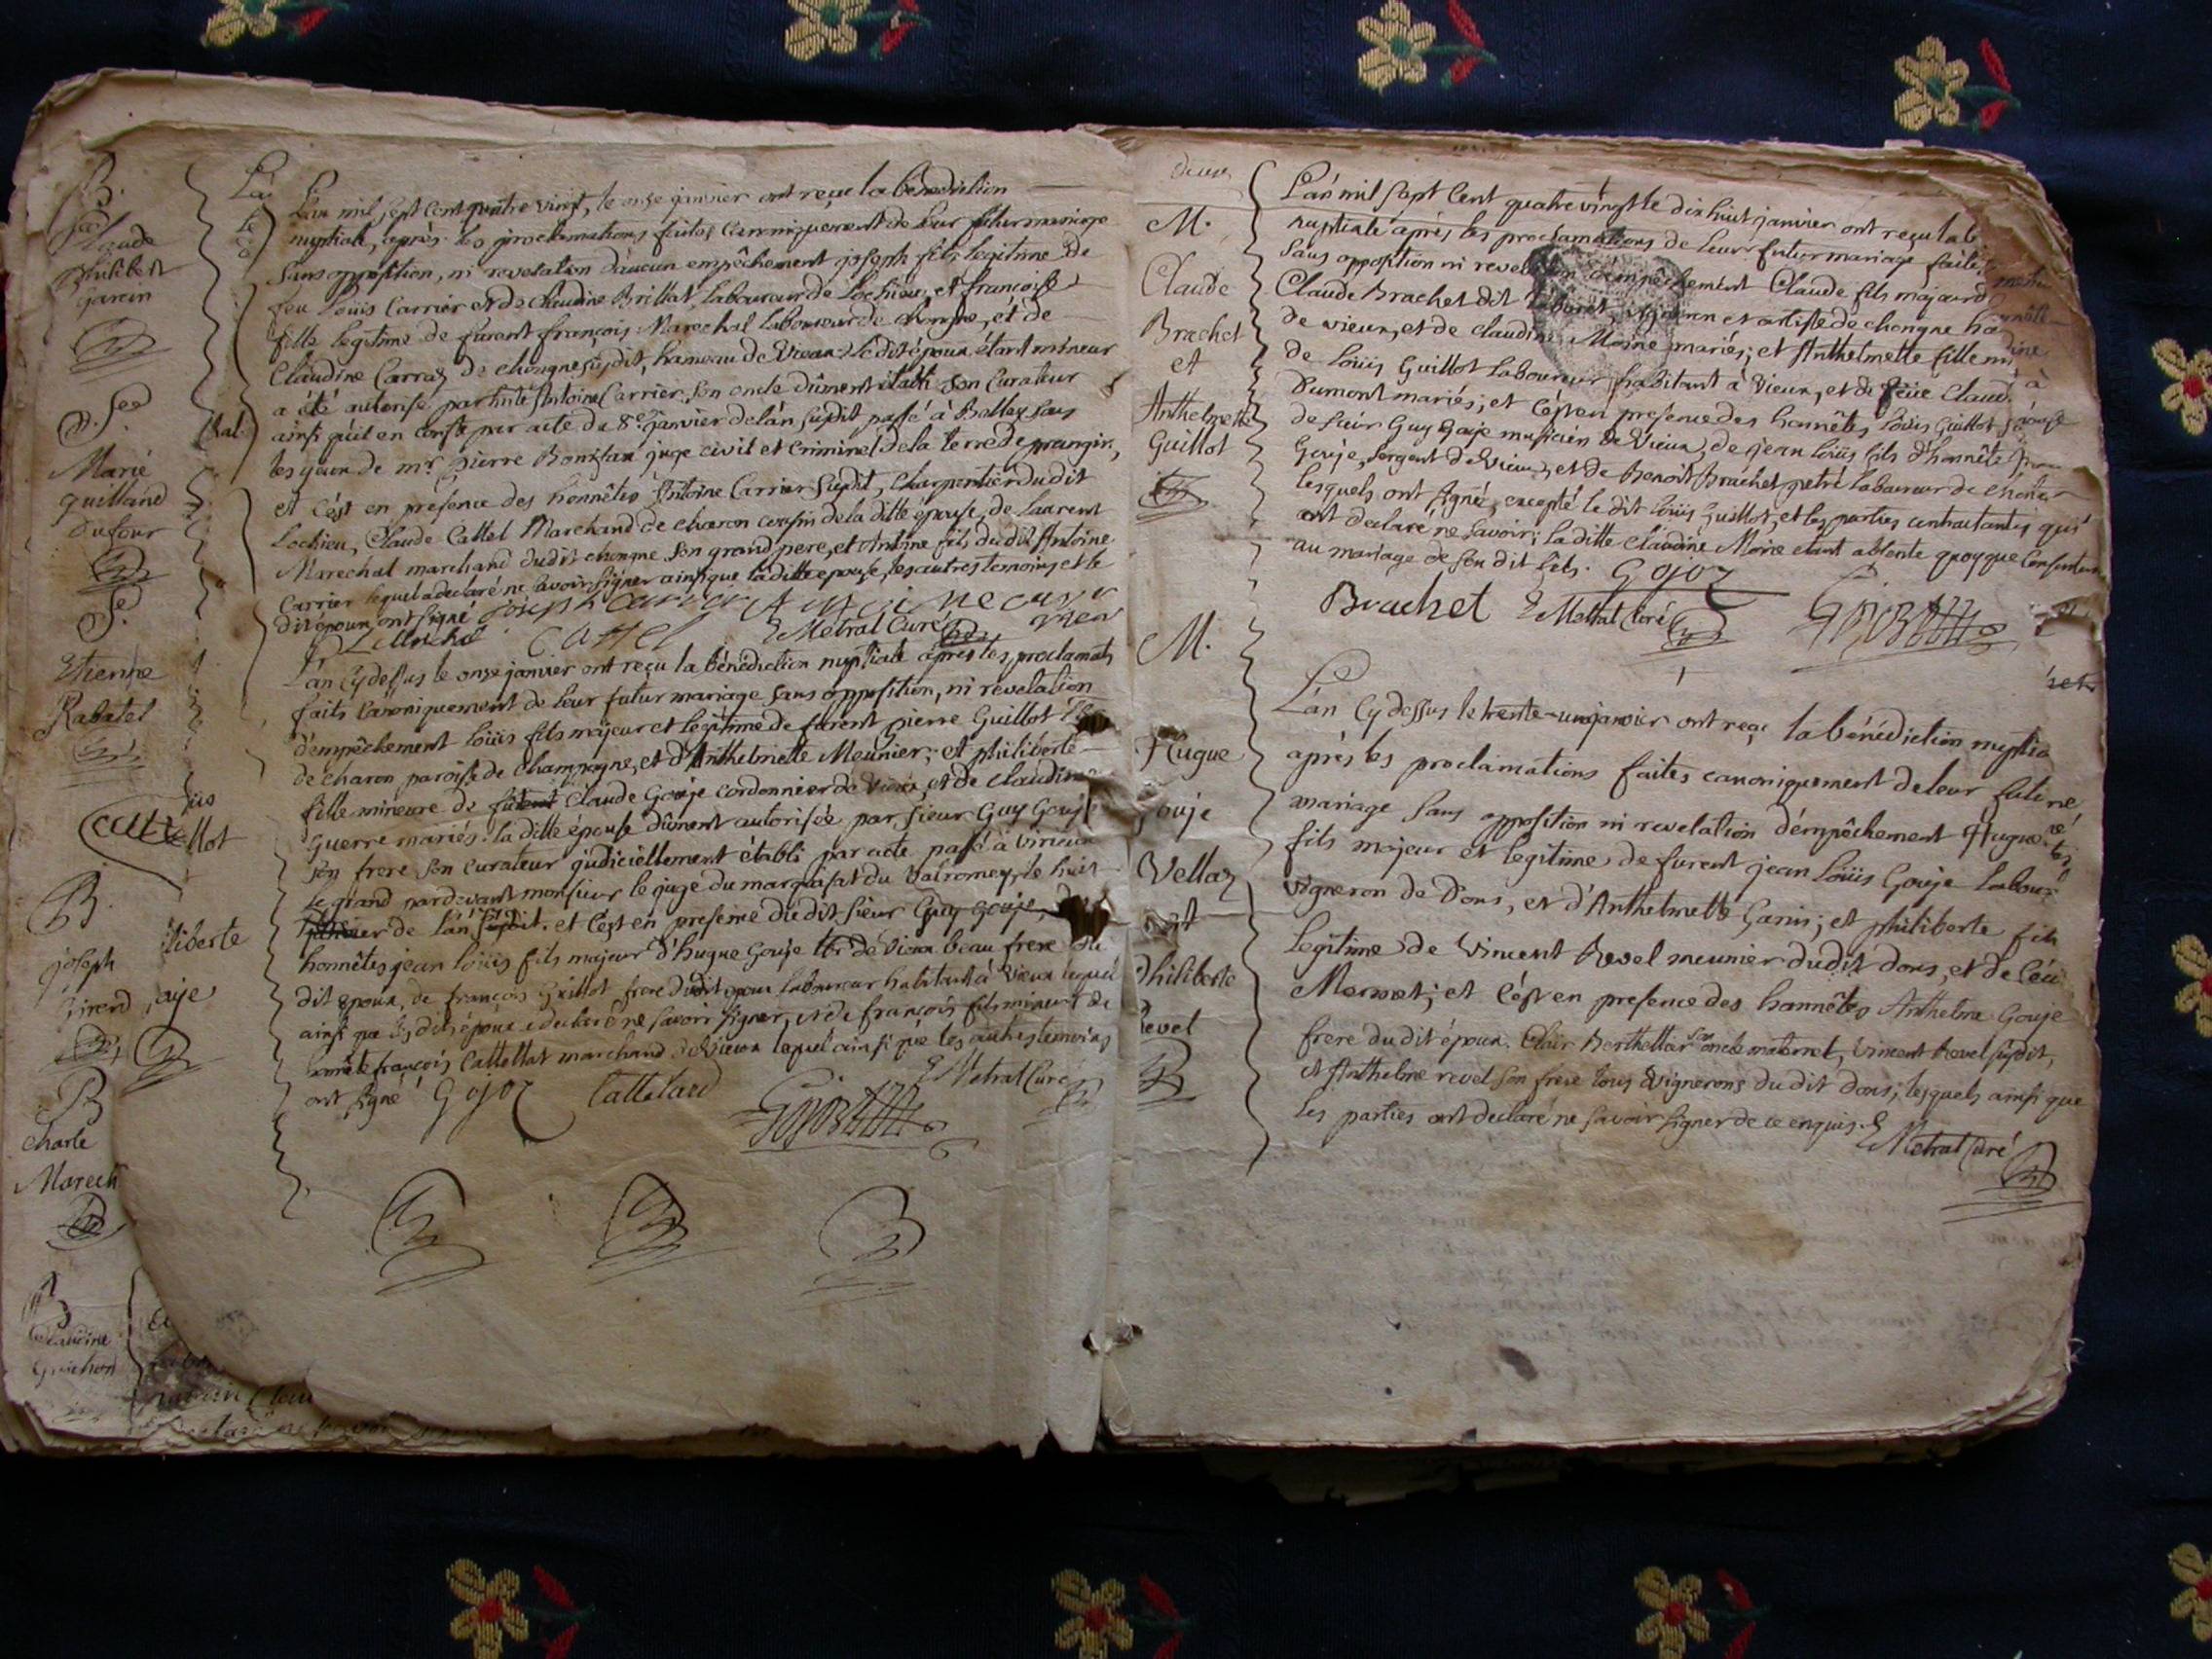 B.
Claude
philibert
garcin
S.
Marie
guilland
Dufour
S.
Etienne
Rabatel
llot
B.
joseph
liberte
B
charle
Marech
B
Claudine
guichon
L'an mil sept cent quatre vingt, le onze janvier ont reçu la benediction
nuptiale, après les proclamations faites canoniquement de leur futur mariage
sans opposition, ni revelation d'aucun empêchement joseph fils legitime de
feu Loüis Carrier et de claudine Brillat, laboureur de Lochieu, et françoise
fille legitime de furent françois Marechal laboureur de chongne, et de
Claudine Carraz de chongne susdit, hameau de Vieux: le dit époux étant mineur
a été autorisé par Antoine Carrier son oncle dûment établi son Curateur
ainsi qu'il en conste par acte du 8e janvier de l'an susdit passé à Belley sous
les yeux de mr. pierre juge civil et Criminel de la terre de
et c'est en présence des honnêtes Antoine Carrier susdit, charpentier du dit
Lochieu, Claude Cattel Marchand de charon cousin de la ditte épouse, de Laurent
Marechal marchand du dit chongne son grand pere, et Antoine fils du dit Antoine
Carrier lequel a declaré ne savoir signer ainsi que la ditte epouse, les autres temoins et le
dit époux ont signé joseph carrier
Cattel Metral Curé
L'an Cy dessus le onze janvier ont reçu la bénédiction nuptiale après les proclamat.
faits canoniquement de leur futur mariage sans opposition, ni revelation
d'empêchement Loüis fils majeur et legitime de furent pierre Guillot
de charon paroisse de Champagne, et d'Anthelmette Meunier; et philiberte
fille mineure de Claude Gouje cordonnier de Vieux, et de claudine
Guerre mariés: la ditte épouse dûment autorisée par sieur Guy Gouje
son frere son curateur judiciellement établi par acte passé à Virieux
le grand pardevant monsieur le juge du marquisat du Valromey, le huit
janvier de l'an susdit. et c'est en presence du dit sieur Guy Gouje,
honnêtes jean loüis fils majeur d'hugue Gouje de Vieux beau frere du
dit epoux, de françois Guillot frere du dit epoux laboureur habitant à Vieux lequel
ainsi que les dits époux declaré ne savoir signer, et de françois fils mineur de
honnête françois Cattellat marchand de Vieux lequel ainsi que les autres temoins
ont signé Gojoz Cattelard Metral Curé
M.
Claude
Brachet
et
Anthelmette
Guillot
L'an mil sept cent quatre vingt le dix huit janvier ont reçu la b
nuptiale après les proclamations de leur futur mariage faite
sans opposition ni revelation d'empêchement Claude fils majeur
Claude Brachet dit vigneron et artiste de chongne ha
de vieux, et de claudine Moine mariés; et Anthelmette fille mi
de loüis Guillot laboureur habitant à Vieux, et de feüe Claud
Dumont mariés; et c'est en presence des honnêtes loüis Guillot
de sieur Guy Gouje musicien de Vieux, de jean loüis fils d'honnête
Gouje, sergent de Vieux, et de Benoit Brachet petré laboureur de
lesquels ont signé, excepté le dit loüis Guillot, et les parties contractantes qui
ont declaré ne savoir; la ditte claudine Moine etant absente quoyque consentan
au mariage de son dit fils. Gojoz
Brachet Metral Curé
M.
Hugue
Gouje
Vellaz
et
Philiberte
Revel
L'an Cy dessus le trente-un janvier ont reçu la bénédiction nuptia
après les proclamations faites canoniquement de leur futur
mariage sans opposition ni revelation d'empêchement Hugue
fils majeur et legitime de furent jean Loüis Gouje labour
vigneron de Dons, et d'Anthelmette Ganin; et philiberte fille
legitime de Vincent Revel meunier du dit dons, et de
Mermet; et c'est en presence des honnêtes Anthelme Gouje
frere du dit époux, Clair Berthellat son oncle maternel, Vincent Revel susdit,
et Anthelme revel son frere tous Vignerons du dit dons; lesquels ainsi que
les parties ont declaré ne savoir signer de ce enquis.
Metral Curé